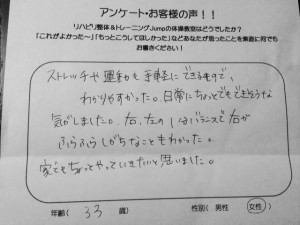 アンケート・お客様の声！！
リハビリ整体＆トレーニングJumpの体操教室はどうでしたか？
「これがよかった～」「もっとこうしてほしかった」などあなたが思ったことを素直に何でも
お書きください！
ストレッチや運動も手軽にできるもので、
わかりやすかった。日常にちょっとでもできそうな
気がしました。右、左の バランスで右が
ふらふらしがちなこともわかった。
家でもちょっとやっていきたいと思いました。
年齢（ 33 歳） 性別（ 男性 女性）